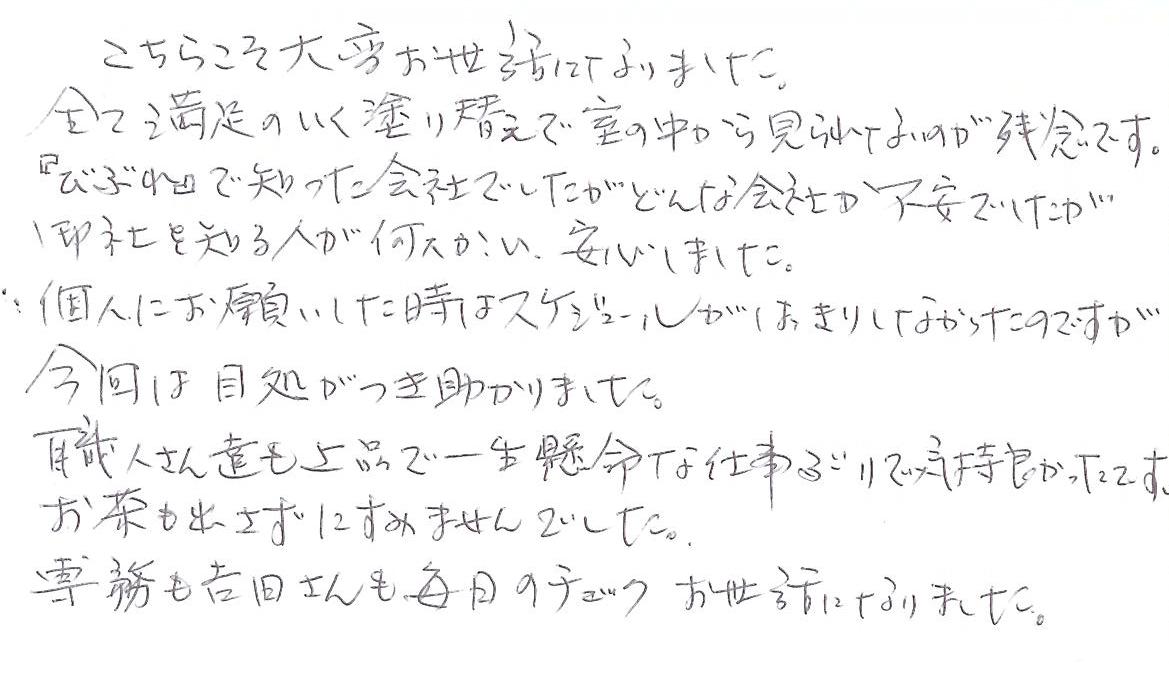 こちらこそ大変お世話になりました。
全て満足のいく塗り替えで室の中から見られないのが残念です。
『びぶれ』で知った会社でしたがどんな会社か不安でしたが
御社を知る人が何人かい、安心しました。
個人にお願いした時はスケジュールがはっきりしなかったのですが
今回は目処がつき助かりました。
職人さん達も上品で一生懸命な仕事ぶりで気持良かったです。
お茶も出さずにすみませんでした。
専務も吉田さんも毎日のチェック お世話になりました。